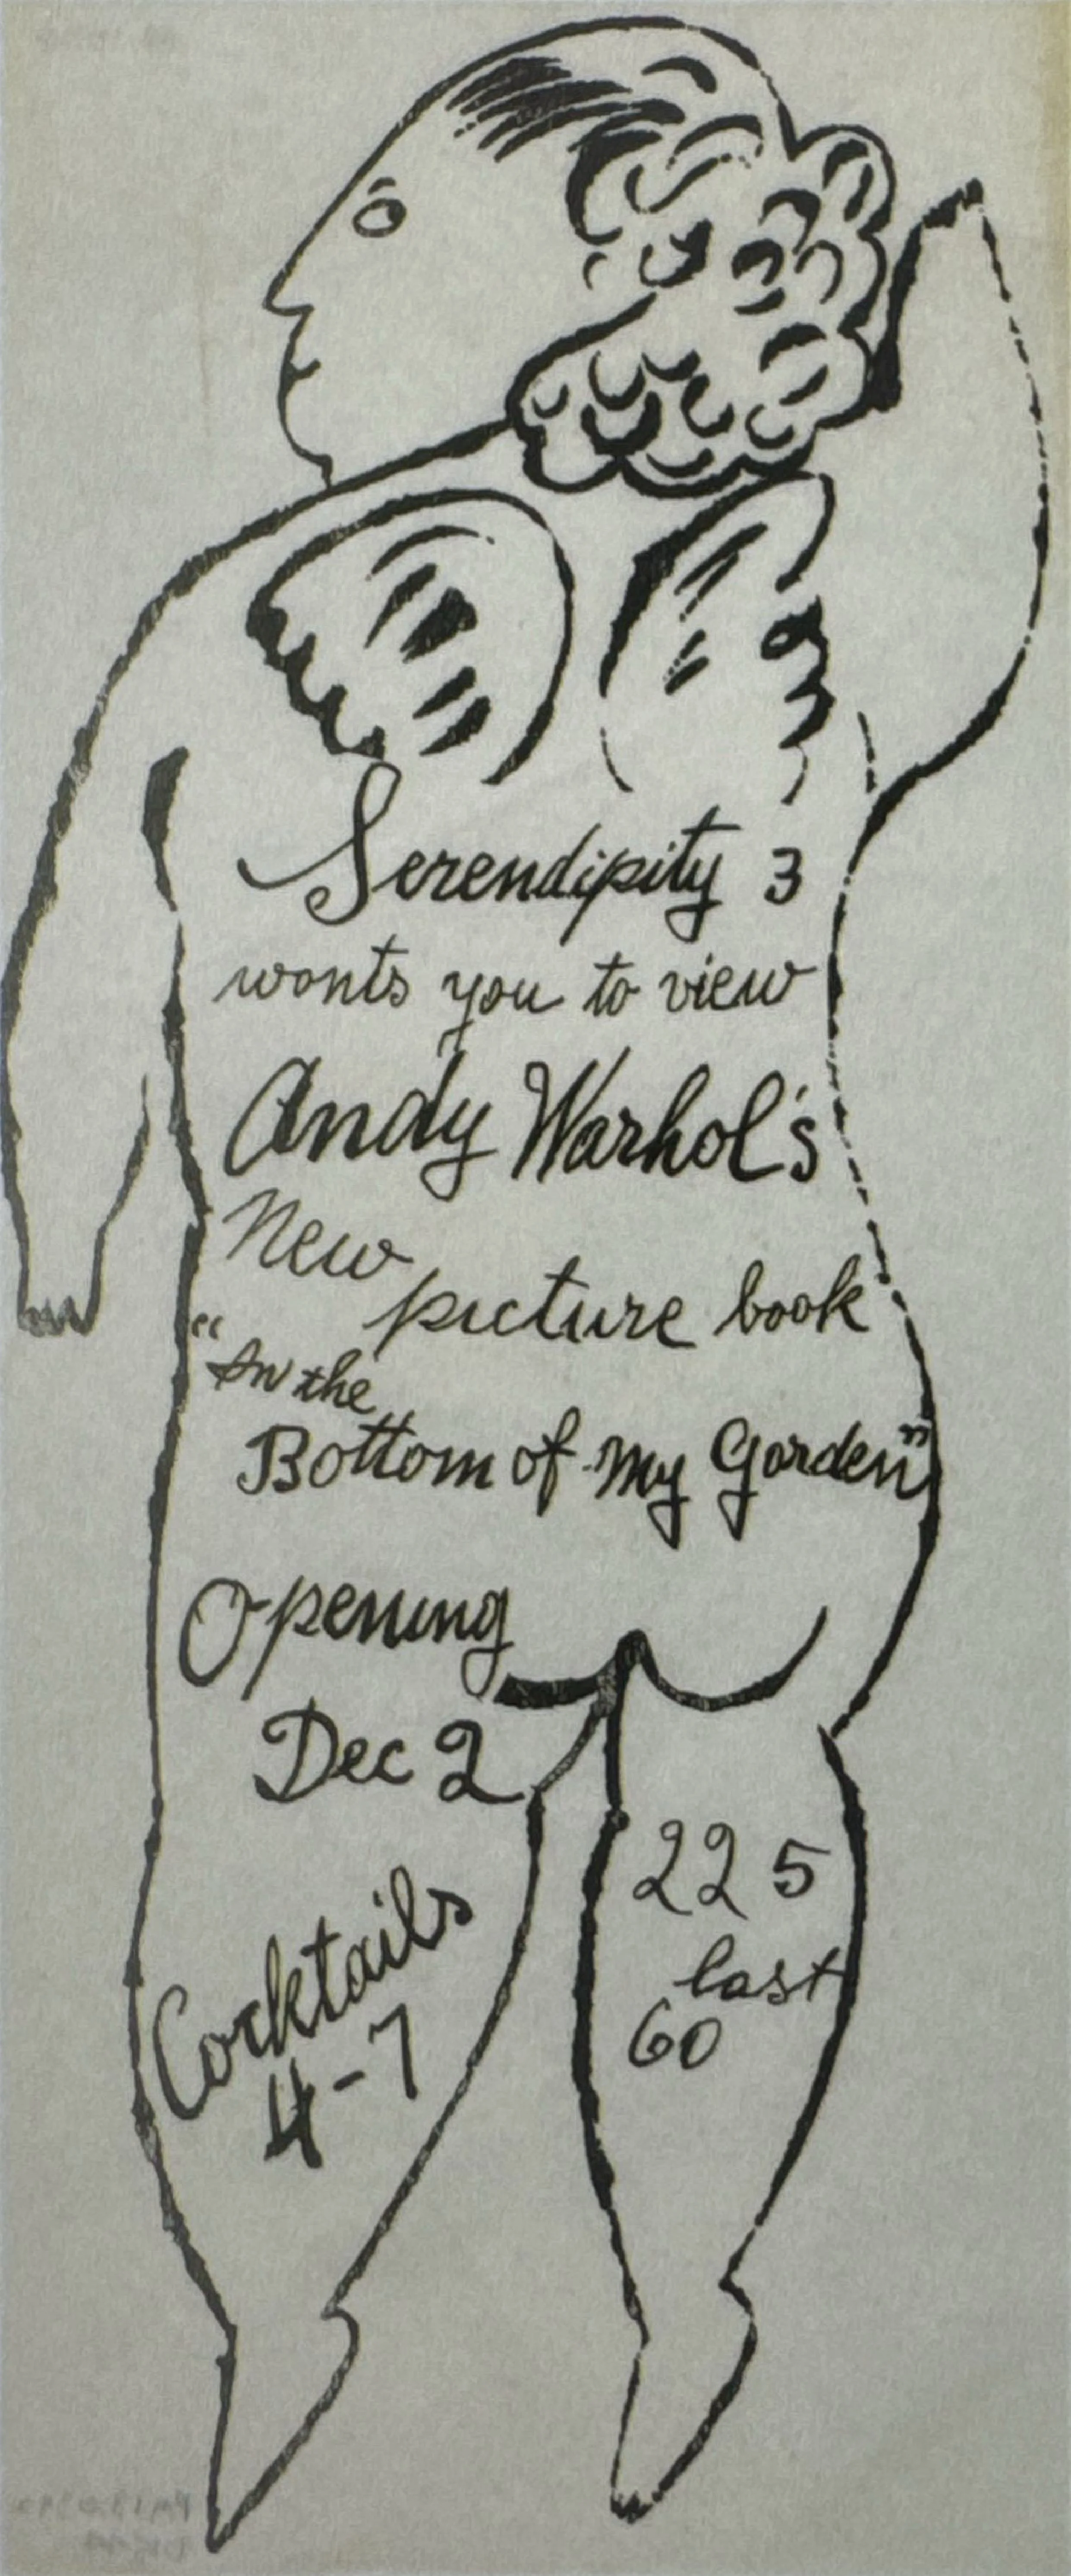 Serendipity 3
wants you to view
Andy Warhol's
New
picture book
"In the
Bottom of My Garden"
Opening
Dec 2
Cocktails
4-7
225
last
60